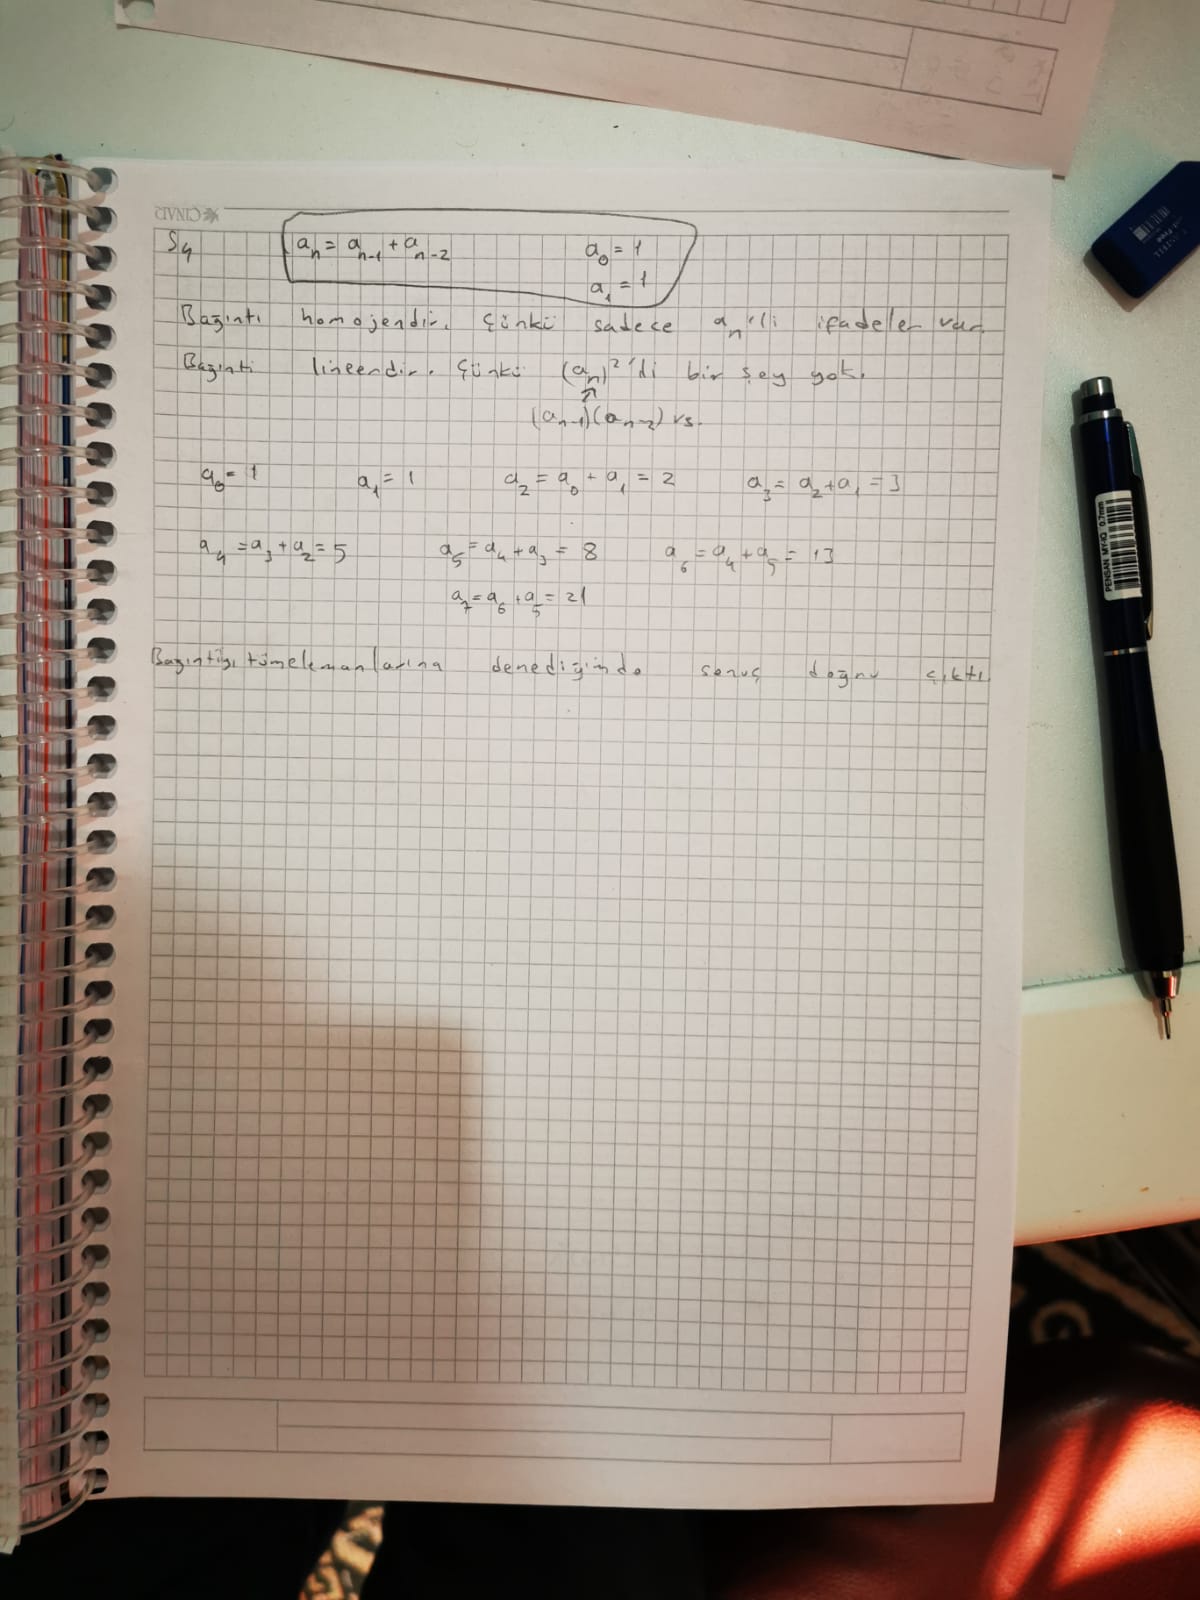 CINAIS
S4
a_n = a_{n-1} + a_{n-2} a_0 = 1
a_1 = 1
Bağıntı homojendir. Çünkü sadece a_n'li ifadeler var.
Bağıntı lineerdir. Çünkü (a_n)^2'li bir şey yok.
↗
(a_{n-1})(a_{n-2}) vs.
a_0 = 1 a_1 = 1 a_2 = a_0 + a_1 = 2 a_3 = a_2 + a_1 = 3
a_4 = a_3 + a_2 = 5 a_5 = a_4 + a_3 = 8 a_6 = a_4 + a_5 = 13
a_7 = a_6 + a_5 = 21
Bağıntıyı tüm elemanlarına denediğimde sonuç doğru çıktı
PENSAN MY-IQ 0.7mm